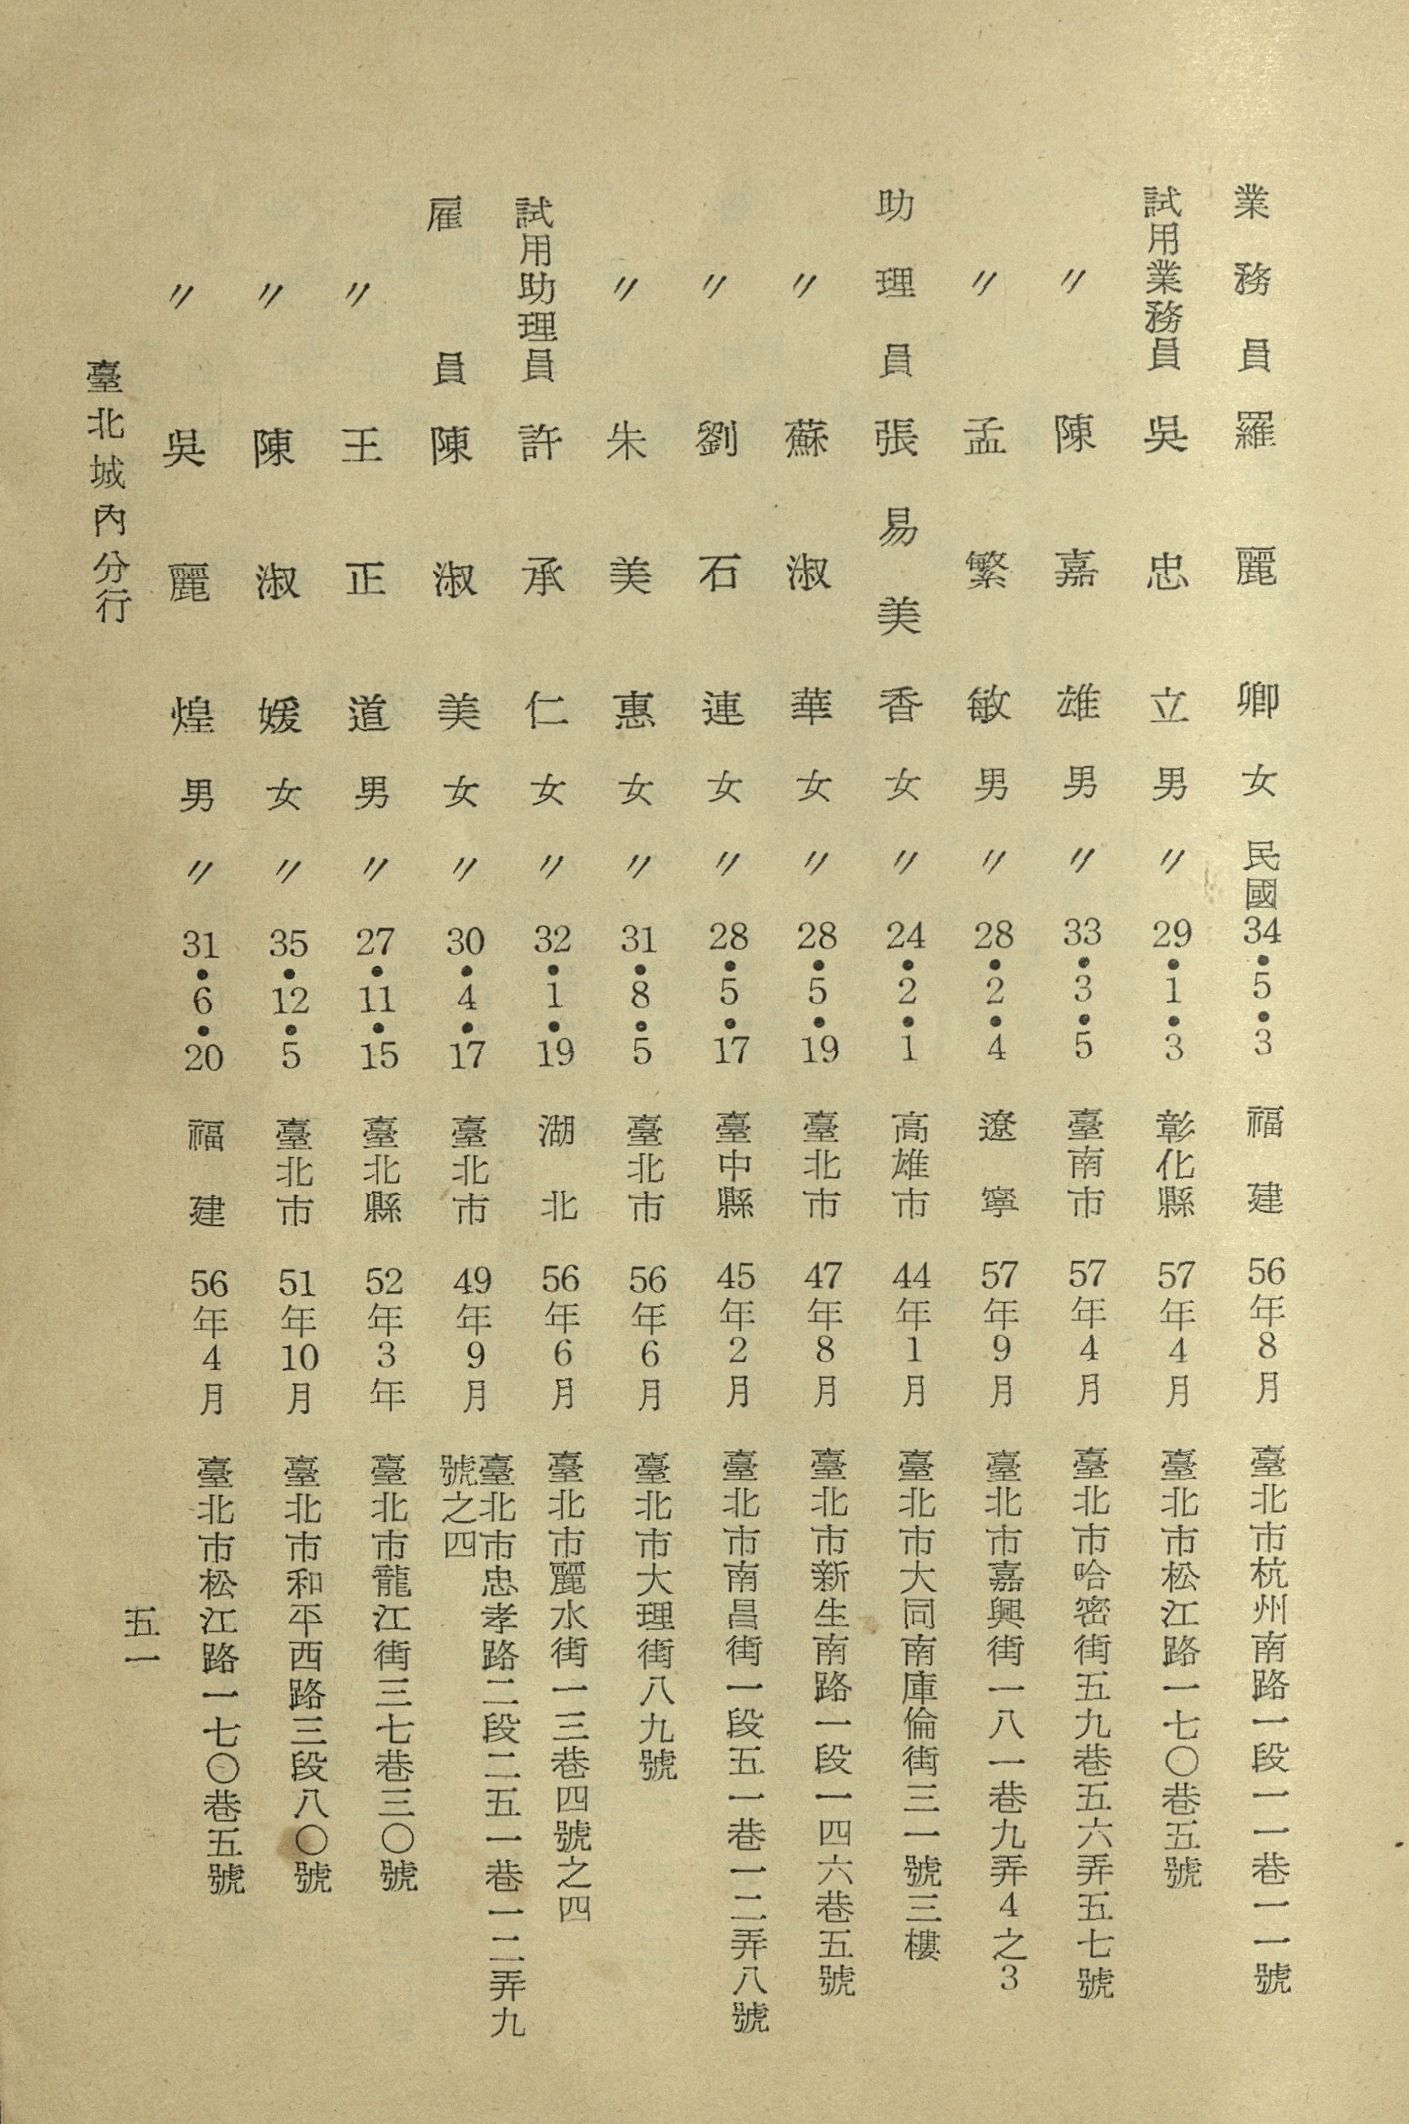 業務員 羅麗卿 女 民國34•5•3 福建 56年8月 臺北市杭州南路一段一一巷一一號
試用業務員 吳忠立 男 〃 29•1•3 彰化縣 57年4月 臺北市松江路一七〇巷五號
〃 陳嘉雄 男 〃 33•3•5 臺南市 57年4月 臺北市哈密街五九巷五六弄五七號
〃 孟繁敏 男 〃 28•2•4 遼寧 57年9月 臺北市嘉興街一八一巷九弄4之3
助理員 張易美香 女 〃 24•2•1 高雄市 44年1月 臺北市大同南庫倫街三一號三樓
〃 蘇淑華 女 〃 28•5•19 臺北市 47年8月 臺北市新生南路一段一四六巷五號
〃 劉石連 女 〃 28•5•17 臺中縣 45年2月 臺北市南昌街一段五一巷一二弄八號
〃 朱美惠 女 〃 31•8•5 臺北市 56年6月 臺北市大理街八九號
試用助理員 許承仁 女 〃 32•1•19 湖北 56年6月 臺北市麗水街一三巷四號之四
雇員 陳淑美 女 〃 30•4•17 臺北市 49年9月 臺北市忠孝路二段二五一巷一二弄九
號之四
〃 王正道 男 〃 27•11•15 臺北縣 52年3年 臺北市龍江街三七巷三〇號
〃 陳淑媛 女 〃 35•12•5 臺北市 51年10月 臺北市和平西路三段八〇號
〃 吳麗煌 男 〃 31•6•20 福建 56年4月 臺北市松江路一七〇巷五號
臺北城內分行
五一